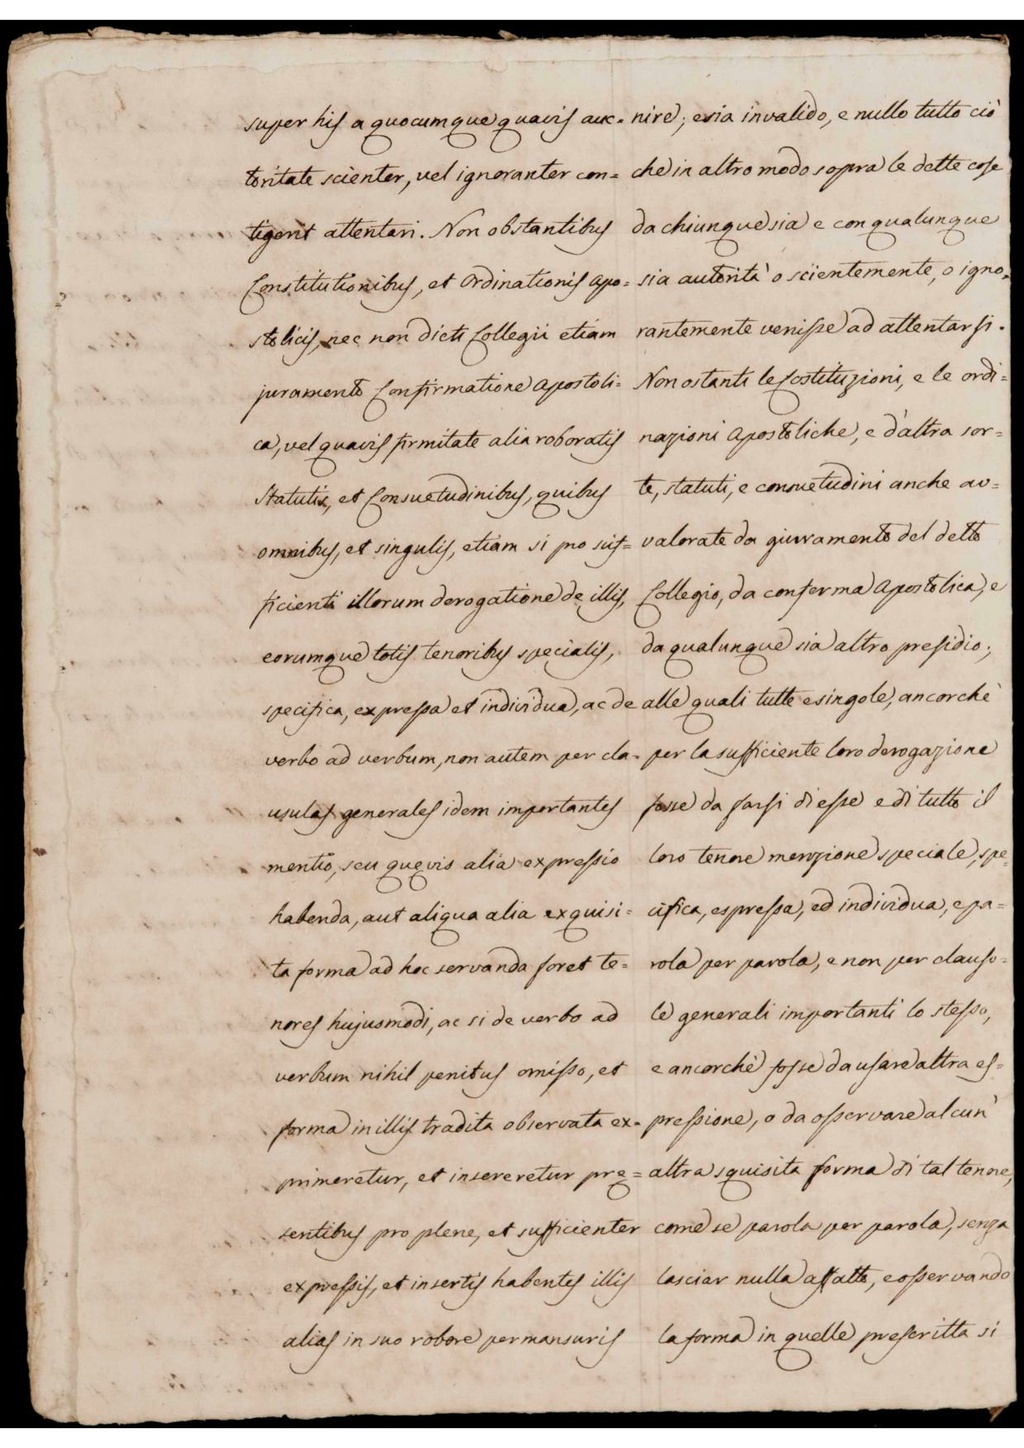 super his a quocumque quavis auc=
toritate scienter, vel ignoranter con=
tigerit attentari. Non obstantibus
Constitutionibus, et Ordinationis Apo=
stolicis, nec non dicti Collegii etiam
juramento Confirmatione Apostoli=
ca, vel quavis firmitate alia roboratis
Statutis, et Consuetudinibus, quibus
omnibus, et singulis, etiam si pro suf=
ficienti illorum derogatione de illis,
eorumque totis tenoribus specialis,
specifica, expressa et individua, ac de
verbo ad verbum, non autem per cla=
usulas generales idem importantes
mentio, seu quevis alia expressio
habenda, aut aliqua alia exquisi=
ta forma ad hoc servanda foret te=
nores hujusmodi, ac si de verbo ad
verbum nihil penitus omisso, et
forma in illis tradita observata ex=
primeretur, et insereretur prę=
sentibus pro plene, et sufficienter
expressis, et insertis habentes illis
alias in suo robore permansuris
nire; e sia invalido, e nullo tutto ciò
che in altro modo sopra le dette cose
da chiunque sia e con qualunque
sia autorità o scientemente, o igno=
rantemente venisse ad attentarsi.
Non ostanti le Costituzioni, e le ordi=
nazioni Apostoliche, e d'altra sor=
te, statuti, e consuetudini anche av=
valorate da giuramento del detto
Collegio, da conferma Apostolica, e
da qualunque sia altro presidio;
alle quali tutte e singole, ancorchè
per la sufficiente loro derogazione
fosse da farsi di esse e di tutto il
loro tenore menzione speciale, spe=
cifica, espressa, ed individua, e pa=
rola per parola, e non per clauso=
le generali importanti lo stesso,
e ancorchè fosse da usare altra es=
pressione, o da osservare alcun'
altra squisita forma di tal tenore,
come se parola per parola, senza
lasciar nulla affatto, e osservando
la forma in quelle prescritta si